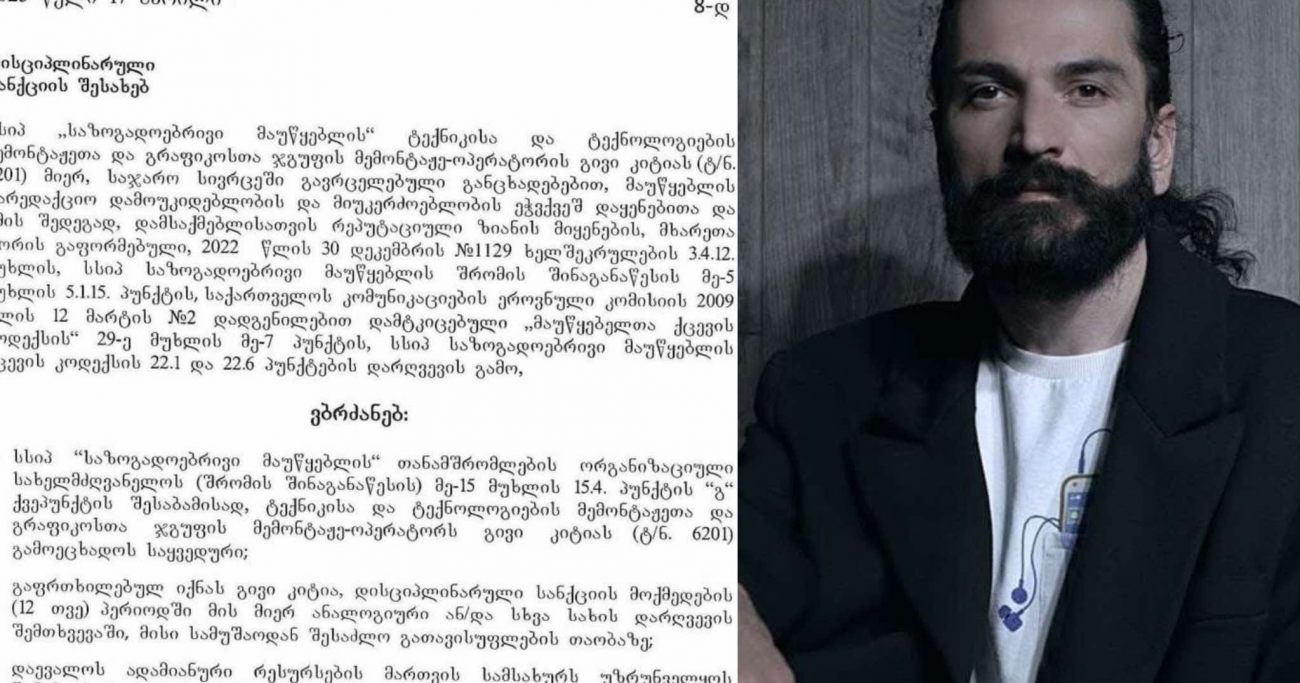 წელი 17 აპრილი
8-დ
დისციპლინარული
სანქციის შესახებ
სსიპ „საზოგადოებრივი მაუწყებლის“ ტექნიკისა და ტექნოლოგიების
მემონტაჟეთა და გრაფიკოსთა ჯგუფის მემონტაჟე-ოპერატორის გივი კიტიას (ტ/ნ.
6201) მიერ, საჯარო სივრცეში გავრცელებული განცხადებებით, მაუწყებლის
სარედაქციო დამოუკიდებლობის და მიუკერძოებლობის ეჭვქვეშ დაყენებითა და
ამის შედეგად, დამსაქმებლისათვის რეპუტაციული ზიანის მიყენების, მხარეთა
შორის გაფორმებული, 2022 წლის 30 დეკემბრის №1129 ხელშეკრულების 3.4.12.
მუხლის, სსიპ საზოგადოებრივი მაუწყებლის შრომის შინაგანაწესის მე-5
მუხლის 5.1.15. პუნქტის, საქართველოს კომუნიკაციების ეროვნული კომისიის 2009
წლის 12 მარტის №2 დადგენილებით დამტკიცებული „მაუწყებელთა ქცევის
კოდექსის“ 29-ე მუხლის მე-7 პუნქტის, სსიპ საზოგადოებრივი მაუწყებლის
ქცევის კოდექსის 22.1 და 22.6 პუნქტების დარღვევის გამო,
ვბრძანებ:
სსიპ “საზოგადოებრივი მაუწყებლის“ თანამშრომლების ორგანიზაციული
სახელმძღვანელოს (შრომის შინაგანაწესის) მე-15 მუხლის 15.4. პუნქტის “გ“
ქვეპუნქტის შესაბამისად, ტექნიკისა და ტექნოლოგიების მემონტაჟეთა და
გრაფიკოსთა ჯგუფის მემონტაჟე-ოპერატორს გივი კიტიას (ტ/ნ. 6201)
გამოეცხადოს საყვედური;
გაფრთხილებულ იქნას გივი კიტია, დისციპლინარული სანქციის მოქმედების
(12 თვე) პერიოდში მის მიერ ანალოგიური ან/და სხვა სახის დარღვევის
შემთხვევაში, მისი სამუშაოდან შესაძლო გათავისუფლების თაობაზე;
დაევალოს ადამიანური რესურსების მართვის სამსახურს უზრუნველყოს